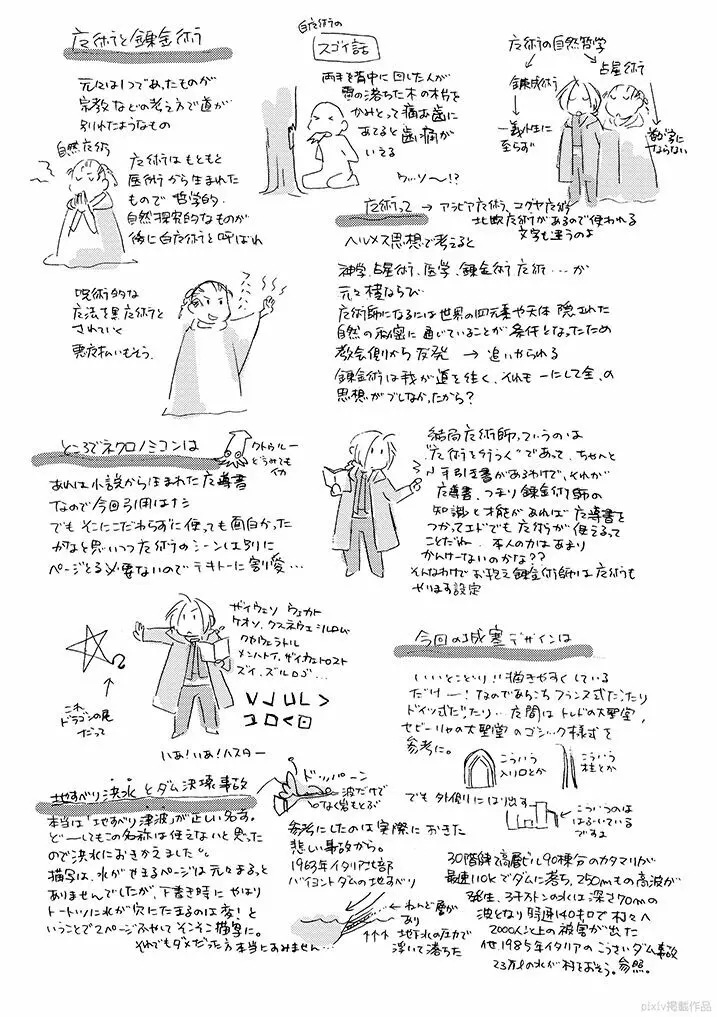 魔術と錬金術
元々は1つであったものが
宗教などの考え方で道が
別れたようなもの
自然魔術
魔術はもともと
医術から生まれた
もので哲学的
自然探究的なものが
後に白魔術と呼ばれ
呪術的な
魔法を黒魔術と
されていく
悪魔払いもそう。
白魔術の
スゴイ話
両手を背中に回した人が
雷の落ちた木の木片を
かみとって痛む歯に
あてると歯痛が
いえる
ウッソ〜!?
魔術の自然哲学
錬成術
占星術
一義性に
至らず
皆が学に
ならない
魔術って → アラビア魔術、コグヤ魔術
北欧魔術があるので使われる
文字も違うのよ
ヘルメス思想で考えると
神学、占星術、医学、錬金術 魔術…が
元々横ならび
魔術師になるには世界の四元素や天体 隠された
自然の秘密に通じていることが条件となったため
教会側から反発 → 追いやられる
錬金術は我が道を往く、それも一にして全、の
思想がブレなかったから?
ところでネクロノミコンは
クトゥルー
どうみても
イカ
あれは小説から生まれた魔導書
なので今回引用はナシ
でもそこにこだわらずに使っても面白かった
かなと思いつつ魔術のシーンは別に
ページとる必要ないのでテキトーに割愛…
結局魔術師っていうのは
"魔術を行う"であって、ちゃんと
手引き書があるわけで、それが
魔導書、つまり錬金術師の
知識と才能があれば魔導書を
つかってエドでも魔術が使えるって
ことだねー 本人の力はあまり
かんけーないのかな??
そんなわけでお抱え錬金術師は魔術も
やります設定
これ
ドラゴンの尾
だって
ザイウェソ ウェカト
ケオソ、クスネウェ=ルロム
クセウェラトル
メンハトイ、ザイウェトロスト
ズイ、ズルロゴ…
いあ!いあ!ハスター
今回の城塞デザインは
いいとこどり!!描きやすくしている
だけー!なのであちこちフランス式だったり
ドイツ式だったり…広間はトレドの大聖堂、
セビーリャの大聖堂のゴシック様式を
参考に。
こういう
入り口とか
こういう
柱とか
でも外側にはり出す
こういうのは
はぶいている
ですよ
地すべり洪水とダム決壊事故
本当は「地すべり津波」が正しい名す。
どーしてもこの名称は使えないと思った
ので洪水におきかえました。
描写は、水がせまるページは元々まるっと
ありませんでしたが、下書き時にやはり
トートツに水が穴にたまるのは変!と
いうことで2ページふやしてそこそこ描写に。
それでもダメだった方本当にすみません…
ドッパーン
波だけで
なく岩もとぶ
参考にしたのは実際におきた
悲しい事故から。
1963年イタリア北部
バイヨントダムの地すべり
ねんど層が
あり
地下水の圧力で
浮いて落ちた
30階建て高層ビル90棟分のカタマリが
最速110kでダムに落ち、250mもの高波が
発生、3千万トンの水は深さ70mの
波となり時速140キロで村々へ
2000人以上の被害が出た
他1985年イタリアのこうさいダム事故
23万tの水が村をおそう。参照。
pixiv掲載作品